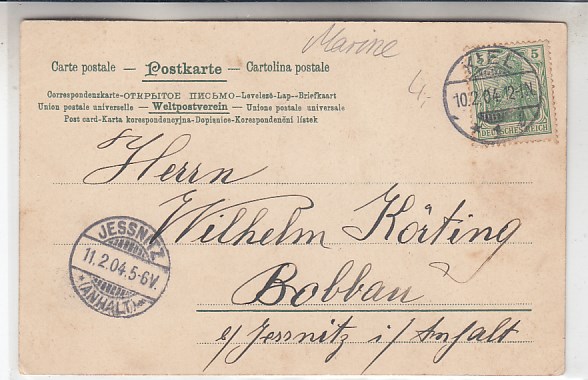 Marine
4,-
Carte postale – Postkarte – Cartolina postale
Correspondenzkarte-ОТКРЫТОЕ ПИСЬМО-Levelező-Lap-Briefkaart
Union postale universelle – Weltpostverein – Unione postale universale
Post card-Karta korespondencyjna-Dopisnice-Korespondenční lístek
KIEL
10.2.04.12-1N.
5
DEUTSCHES REICH
Herrn
Wilhelm Körting
Bobbau
JESSNITZ
11.2.04.5-6V.
*(ANHALT)*
b/ Jessnitz i/ Anhalt